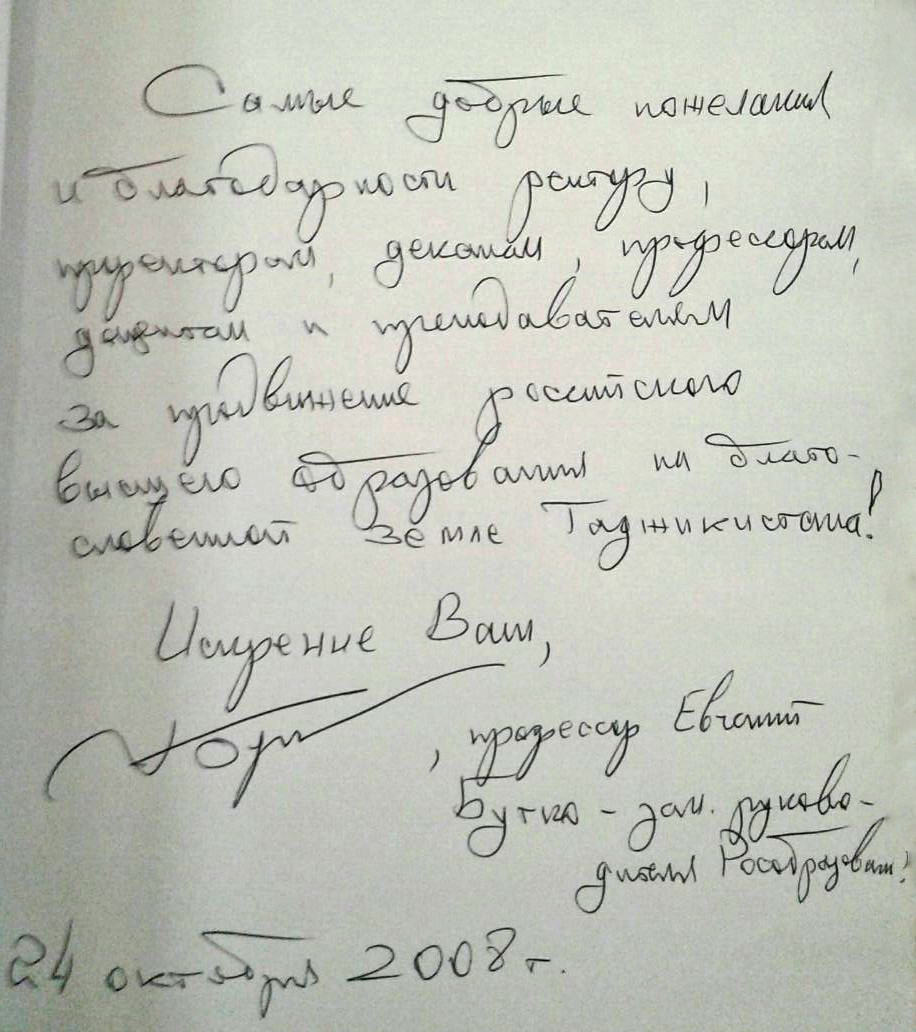 Самые добрые пожелания
и благодарности ректору,
проректорам, деканам, профессорам,
доцентам и преподавателям
за продвижение российского
высшего образования на благо-
словенной земле Таджикистана!
Искренне Ваш,
, профессор Евгений
Бутко - зам. руково-
дителя Рособразования
24 октября 2008 г.